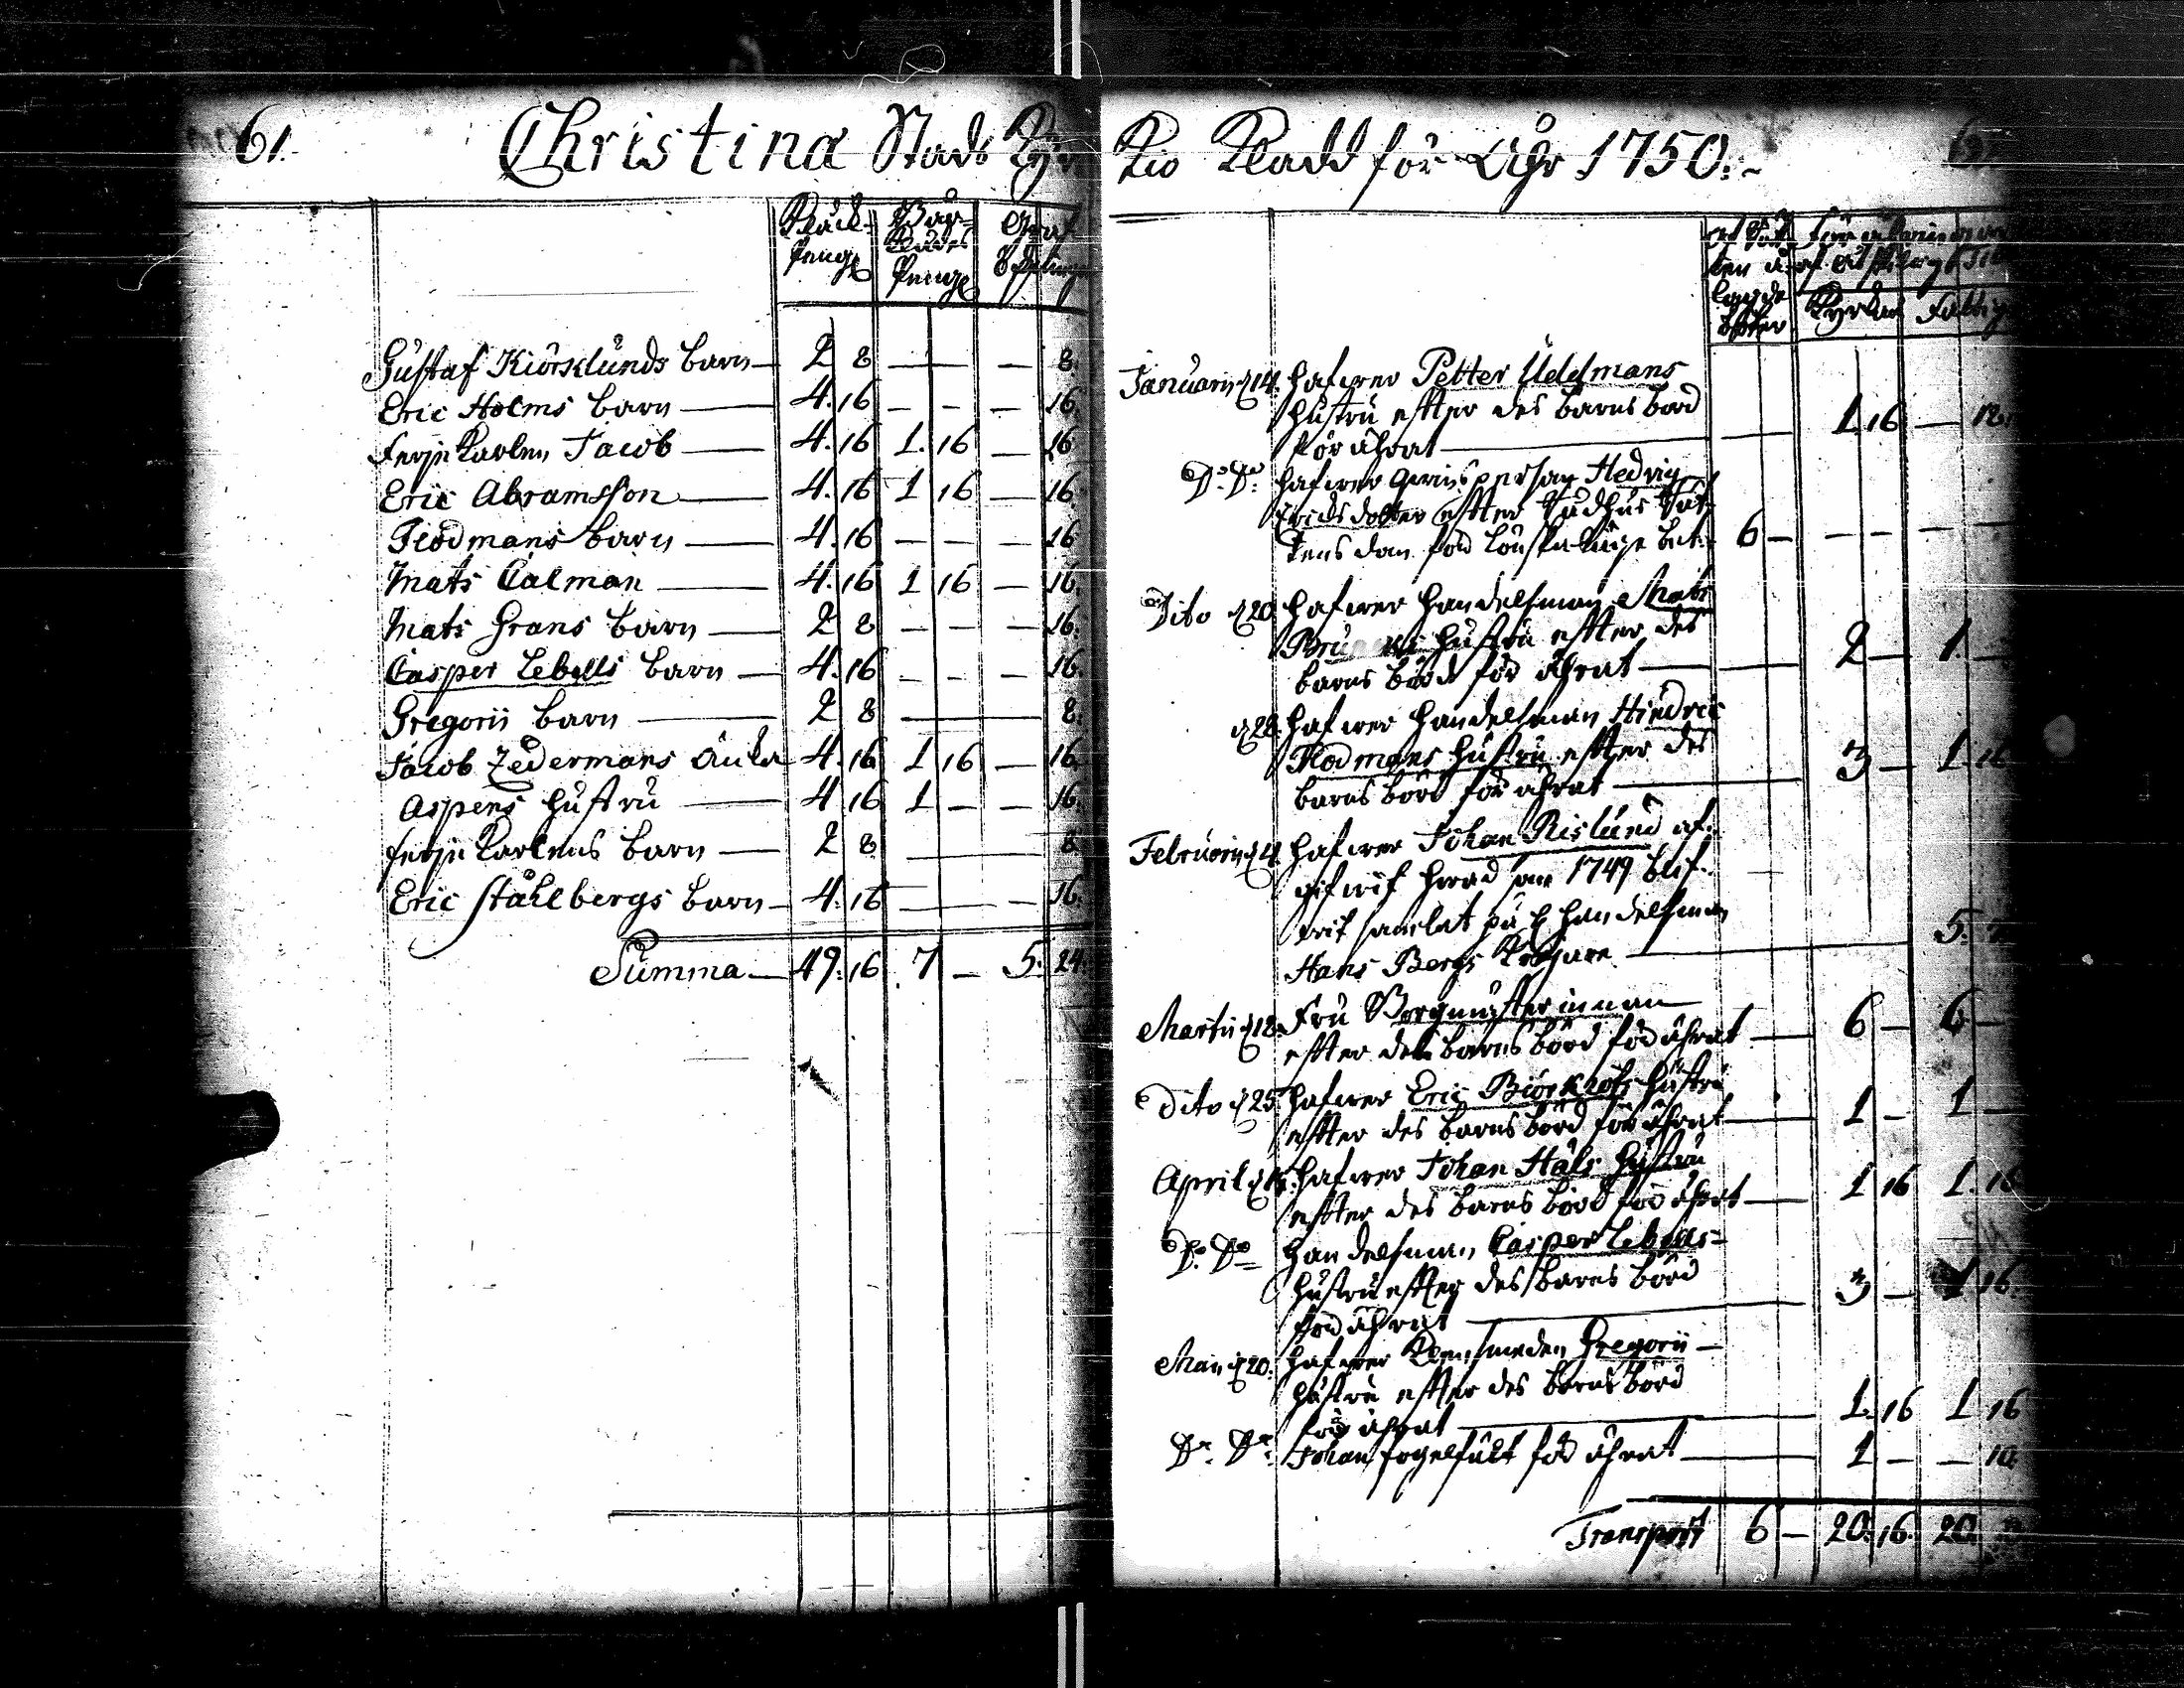 61.
Christina Stads Kyr
Klock- Penge
Bår- Klädes Penge
Graf
Gustaf Kiörklunds barn — 2 8 — — — 8.
Eric Holms barn — 4. 16 — — — 16.
Ferjekarlen Jacob — 4. 16 1. 16 — 16
Eric Abramsson — 4. 16 1 16 — 16
Flodmans barn — 4. 16 — — — 16
Mats Calman — 4. 16 1 16 — 16.
Mats Grans barn — 2 8 — — — 16.
Casper Lebells barn — 4. 16 — — — 16.
Gregorii barn — 2 8 — 8.
Jacob Zedermans Änka 4. 16 1 16 — 16
Aspens hustru — 4 16 1 — — 16.
Ferjekarlens barn — 2 8 — 8
Eric Ståhlbergs barn — 4. 16 — — 16.
Summa — 49. 16 7 — 5. 24.
kio Kladd för Åhr 1750.
Kyrkan
Januarii d 14. hafwer Petter Uddmans
hustru effter des barns börd
för ährat — 1. 16 — 12.
Do Do hafwer Hedvig
Ericsdotter effter
6 — — — —
Dito d 20. hafwer handelsman Mats
hustru effter des
barns börd för ährat — 2 — 1. —
d 28. hafwer handelsman Hindric
Flodmans hustru effter des
barns börd för ährat — 3 — 1. 16
Februarii d 4. hafwer Johan Rislund af-
gifwit hwad som 1749 blif-
wit samlat på handelsman
Hans Bergs — 5.
Martii d 18. Fru Borgmästerinnan
effter des barns börd för ährat — 6 — 6 —
Dito d 25 hafwer Eric hustru
effter des barns börd för ährat — 1 — 1 —
April d hafwer Johan Hals hustru
effter des barns börd för ährat — 1 16 1. 16
Do Do handelsman Casper Lebells
hustru effter des barns börd
för ährat — 3 — 1 16.
Maii d 20. hafwer Gregorii —
hustru effter des barns börd
för ährat — 1. 16 1 16
Do Do Johan Fogelhult för ährat — 1 — — 10.
Transport 6 — 20. 16. 20.